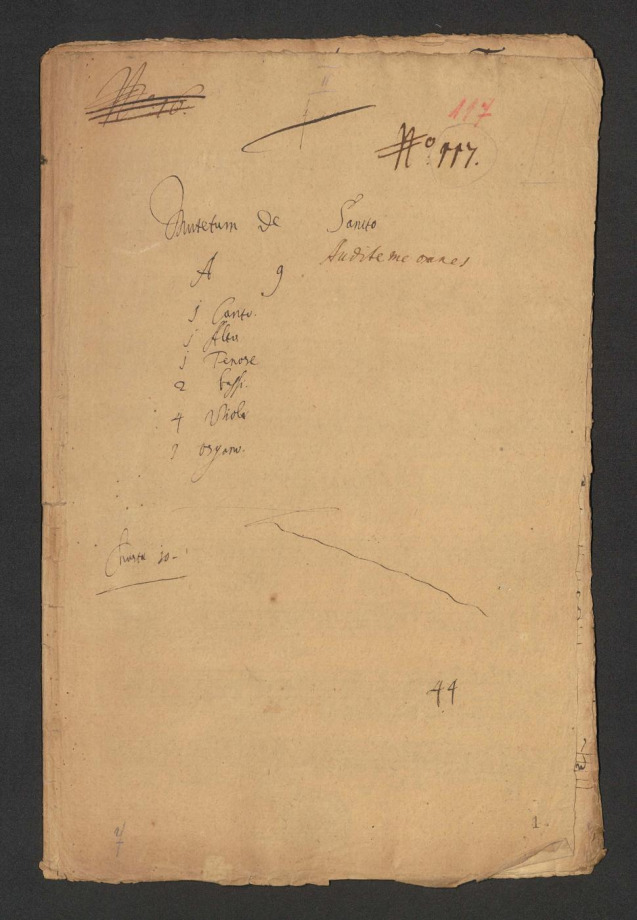 No 16.
117
No 117.
Mutetum De Sancto
Audite me omnes
A 9
1 Canto.
1 Alto
1 Tenore
2 bassi.
4 Viole
1 organo.
10
44
1